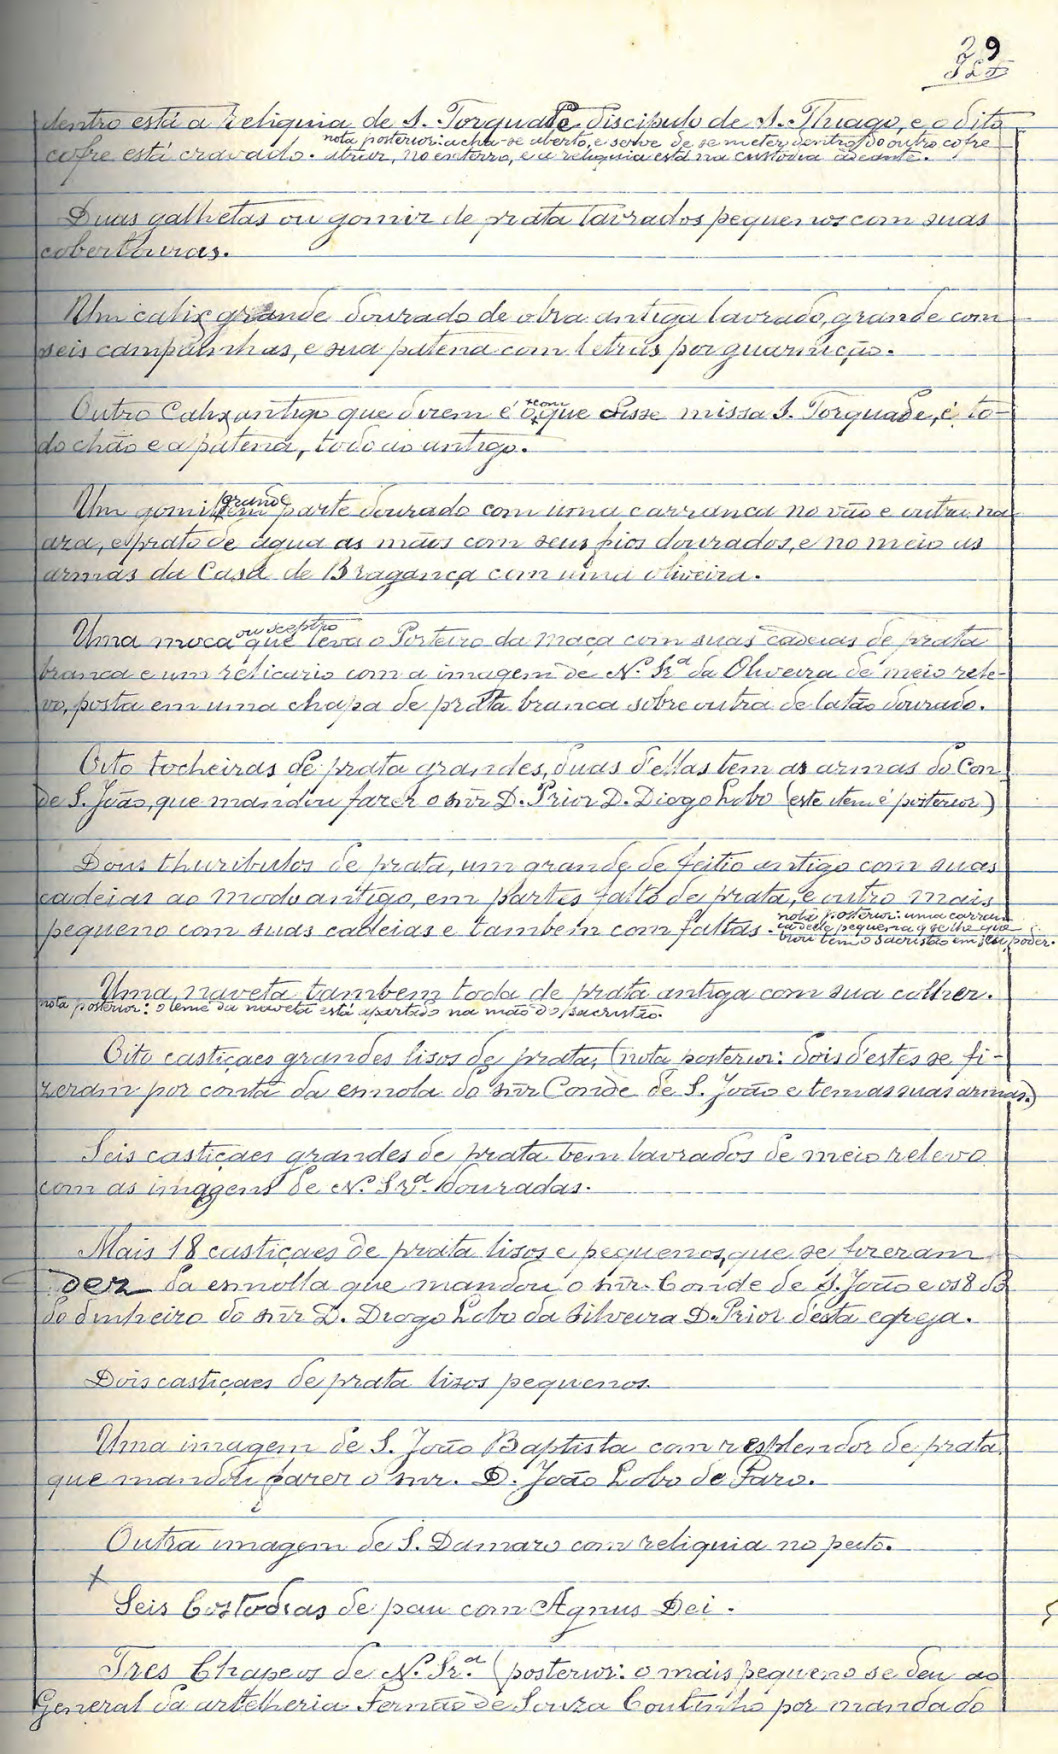 29
dentro está a reliquia de S. Torquate discipulo de S. Thiago, e o dito
nota posterior: acha-se aberto, e serve de se meter dentro do outro cofre
cofre está cravado. no enterro, e a reliquia está na custodia adeante.
Duas galhetas ou gomir de prata lavrados pequenos com suas
coberturas.
Um calix grande dourado de obra antiga lavrado, grande com
seis campainhas, e sua patena com letras por guarnição.
com
Outro Calix antigo que dizem é o que disse missa S. Torquade, é to-
do chão e a patena, todo ao antigo.
grande
Um gomil em parte dourado com uma carranca no vão e outra na
aza, e prato de agua as mãos com seus fios dourados, e no meio as
armas da Casa de Bragança com uma oliveira.
ou sceptro
Uma moca que leva o Porteiro da maça com suas cadeias de prata
branca e um relicario com a imagem de N.ª Sr.ª da Oliveira de meio rele-
vo, posta em uma chapa de prata branca sobre outra de latão dourado.
Oito tocheiras de prata grandes, duas d'ellas tem as armas do Con
de S. João, que mandou fazer o snr D. Prior D. Diogo Lobo (este item é posterior)
Dous thuribulos de prata, um grande de feitio antigo com suas
cadeias ao modo antigo, em partes falto de prata, e outro mais
nota posterior: uma carran
pequeno com suas cadeias e tambem com faltas. cadeela pequena q se lhe que
brou tem o sacristão em seu poder.
Uma naveta tambem toda de prata antiga com sua colher.
nota posterior: o leme da naveta está apartado na mão do sacristão.
Oito castiçaes grandes lisos de prata, (nota posterior: dois d'estes se fi-
zeram por conta da esmola do snr Conde de S. João e tem as suas armas.)
Seis castiçaes grandes de prata bem lavrados de meio relevo
com as imagens de N.ª Sr.ª douradas.
Mais 18 castiçaes de prata lisos e pequenos, que se fizeram
Dez da esmolla que mandou o snr. Conde de S. João e os 8 do
do dinheiro do snr D. Diogo Lobo da Silveira D. Prior d'esta egreja.
Dois castiçaes de prata lisos pequenos.
Uma imagem de S. João Baptista com resplendor de prata
que mandou fazer o snr. D. João Lobo de Faro.
Outra imagem de S. Damazo com reliquia no peito.
x
Seis Costodias de pau com Agnus Dei.
Tres Chapeos de N.ª Sr.ª (posterior: o mais pequeno se deu ao
General da artelheria Fernão de Souza Coutinho por mandado